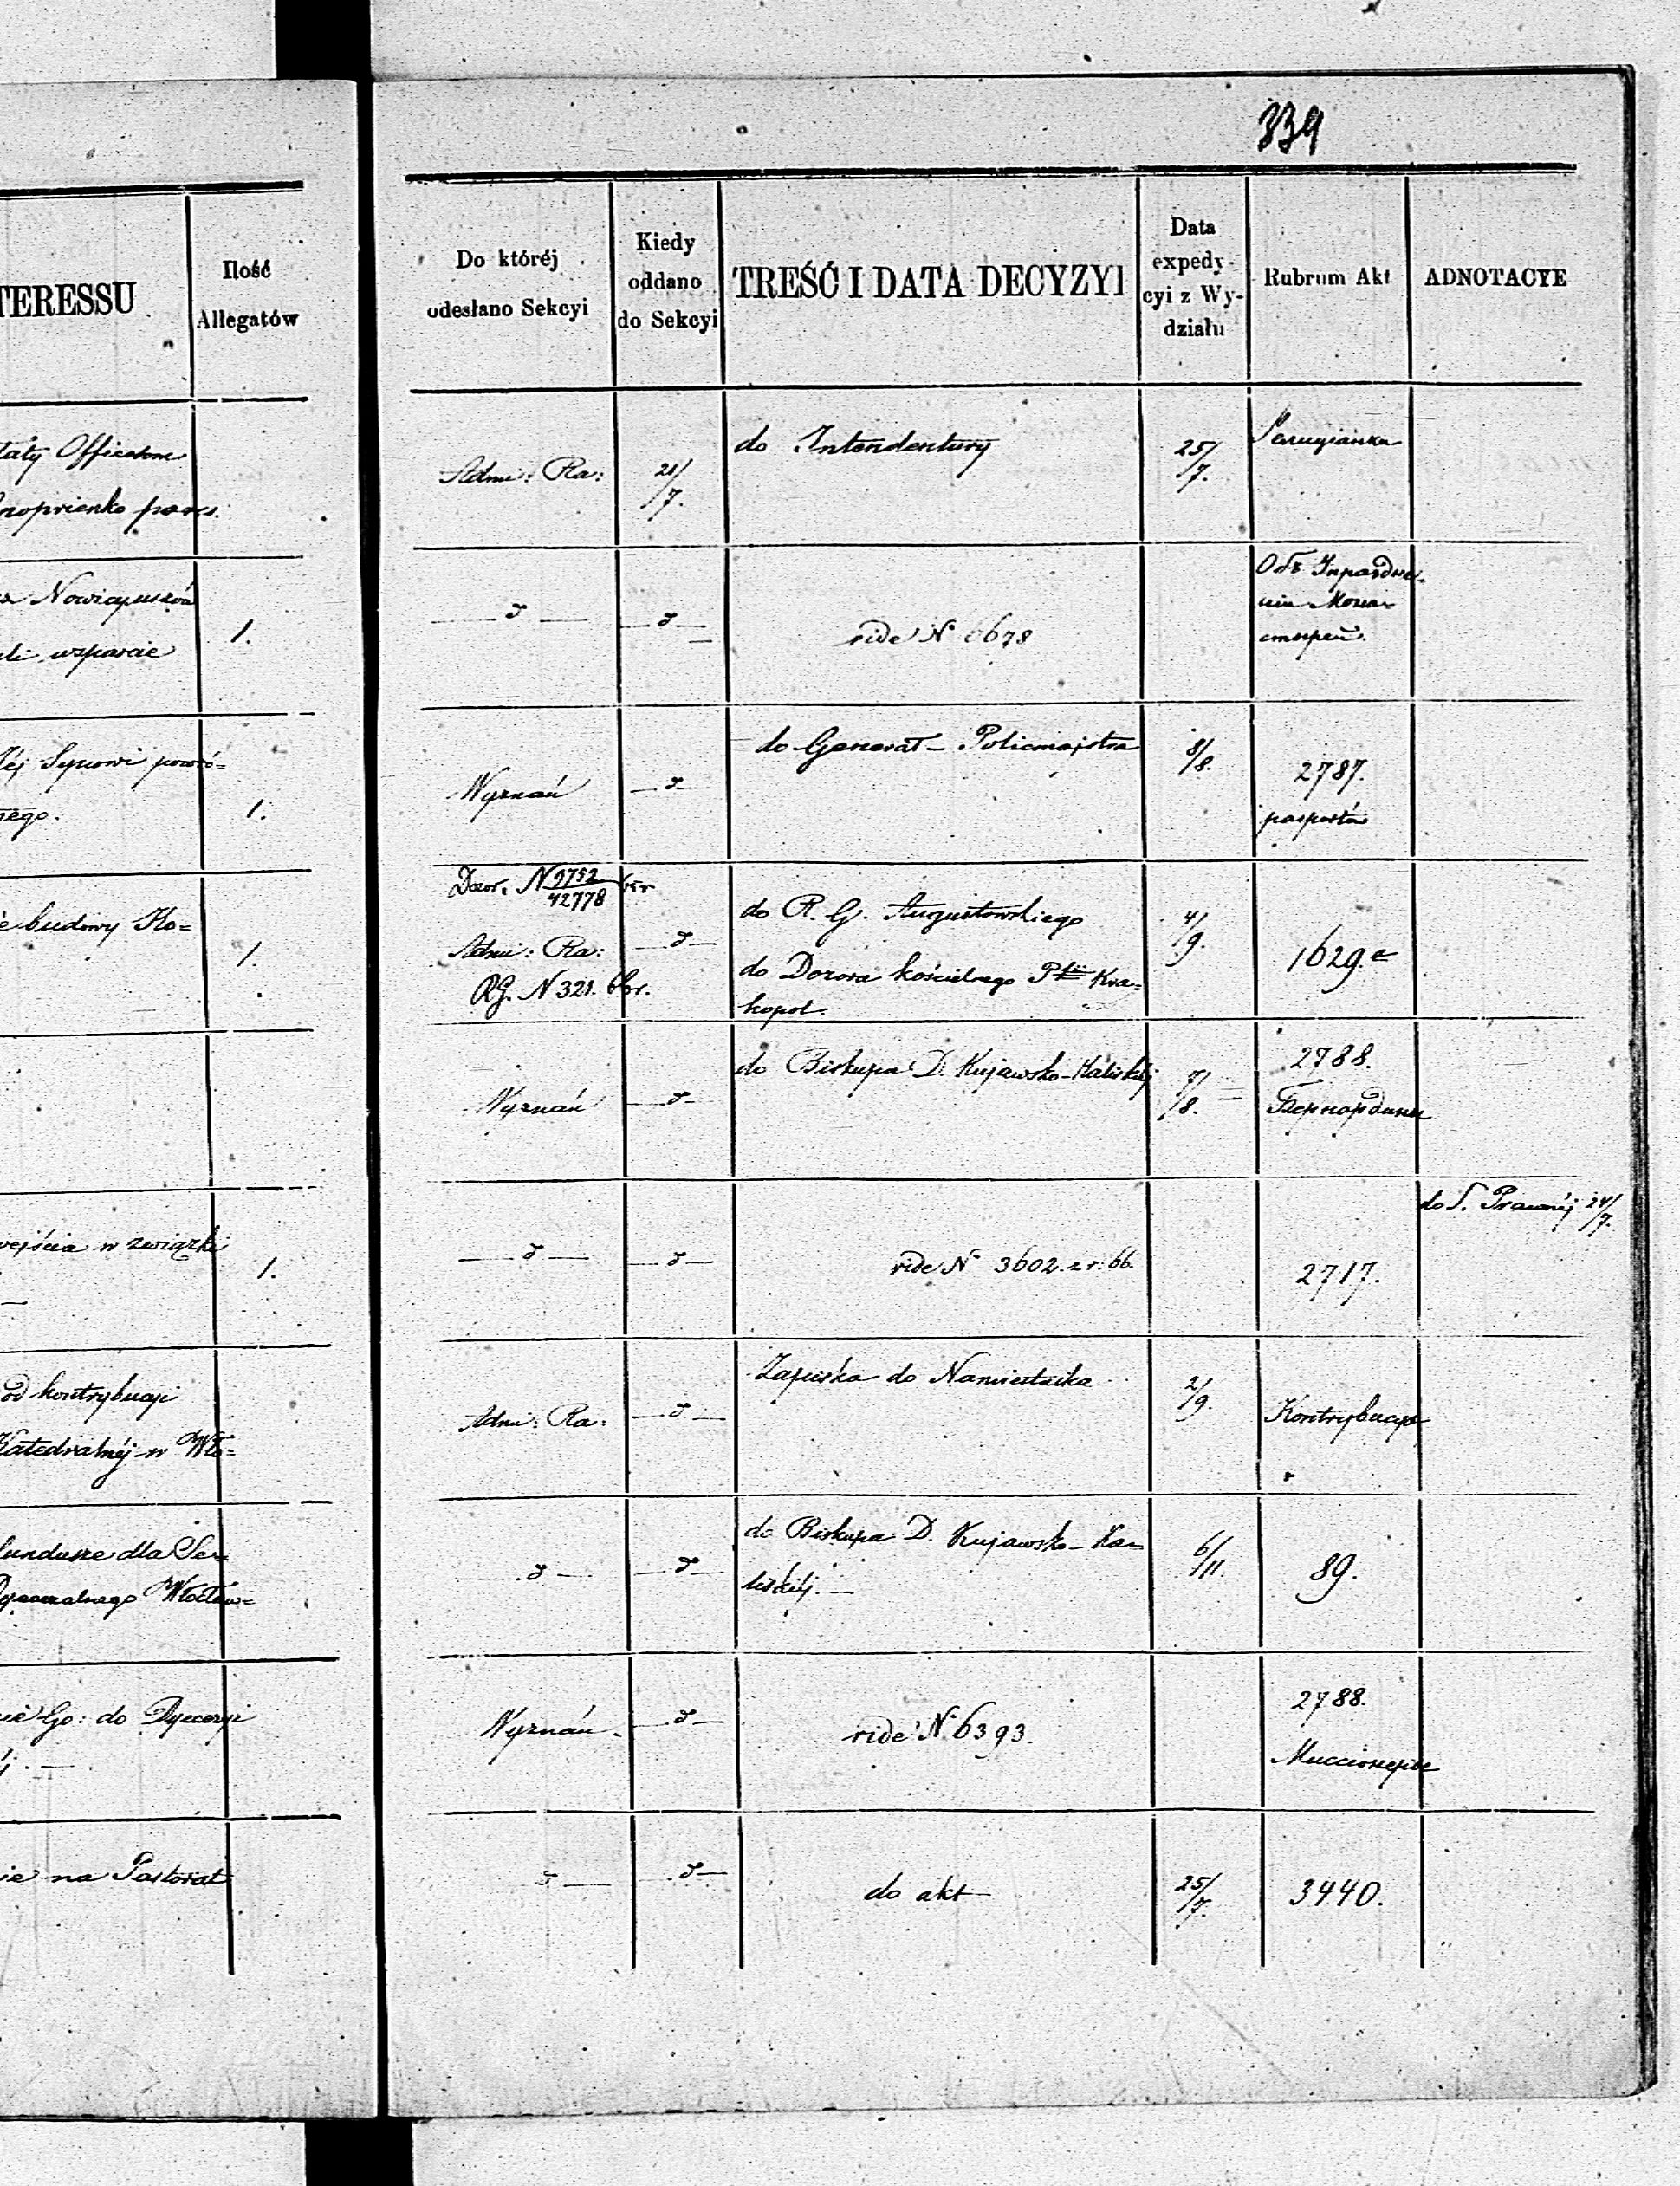 339
TERESSU
Ilość
Allegatów
Do któréj
odesłano Sekcyi
Kiedy
oddano
do Sekcyi
TREŚĆ I DATA DECYZYI
Data
expedy-
cyi z Wy-
działu
Rubrum Akt
ADNOTACYE
Admi: Ra:
21/7.
do Intendentury
25/7.
Nowicyuszów
wsparcie
1.
d
d
vide N 6678
Synowi powró=
nego.
1.
Wyznań
d
do Generał-Policmajstra
8/8.
2787.
paszportów
budowy Ko=
1.
Dozr. N 9752/42778
Admi: Ra:
RG. N 321.
d
do R. G. Augustowskiego
do Dozoru kościelnego Kra=
kopol.
4/9.
1629.
Wyznań
d
do Biskupa D. Kujawsko-Kaliskiéj
7/8.
2788.
Бернардини
wejścia w związki
1.
d
d
vide N 3602. z r: 66.
2717.
do S. Prawnéj 24/7.
od kontrybucyi
Katedralnéj w Wło=
Admi: Ra:
d
Zapiska do Namiestnika
2/9.
Kontrybucye
fundusze dla Se=
Dyecezalnego Włocław=
d
d
do Biskupa D. Kujawsko-Ka=
liskiéj.
6/11.
89.
Go: do Dyecezyi
Wyznań
d
vide N 6393.
2788.
na Pastorat
d
d
do akt
25/7.
3440.